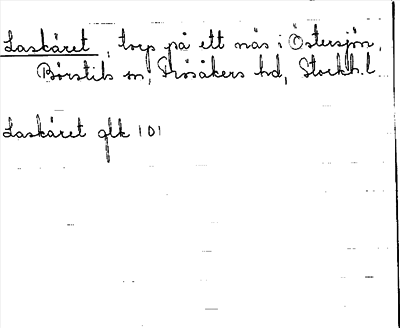 Laskäret, torp på ett näs i Östersjön,
Börstils sn, Frösåkers hd, Stockh. l
Laskäret glk 101